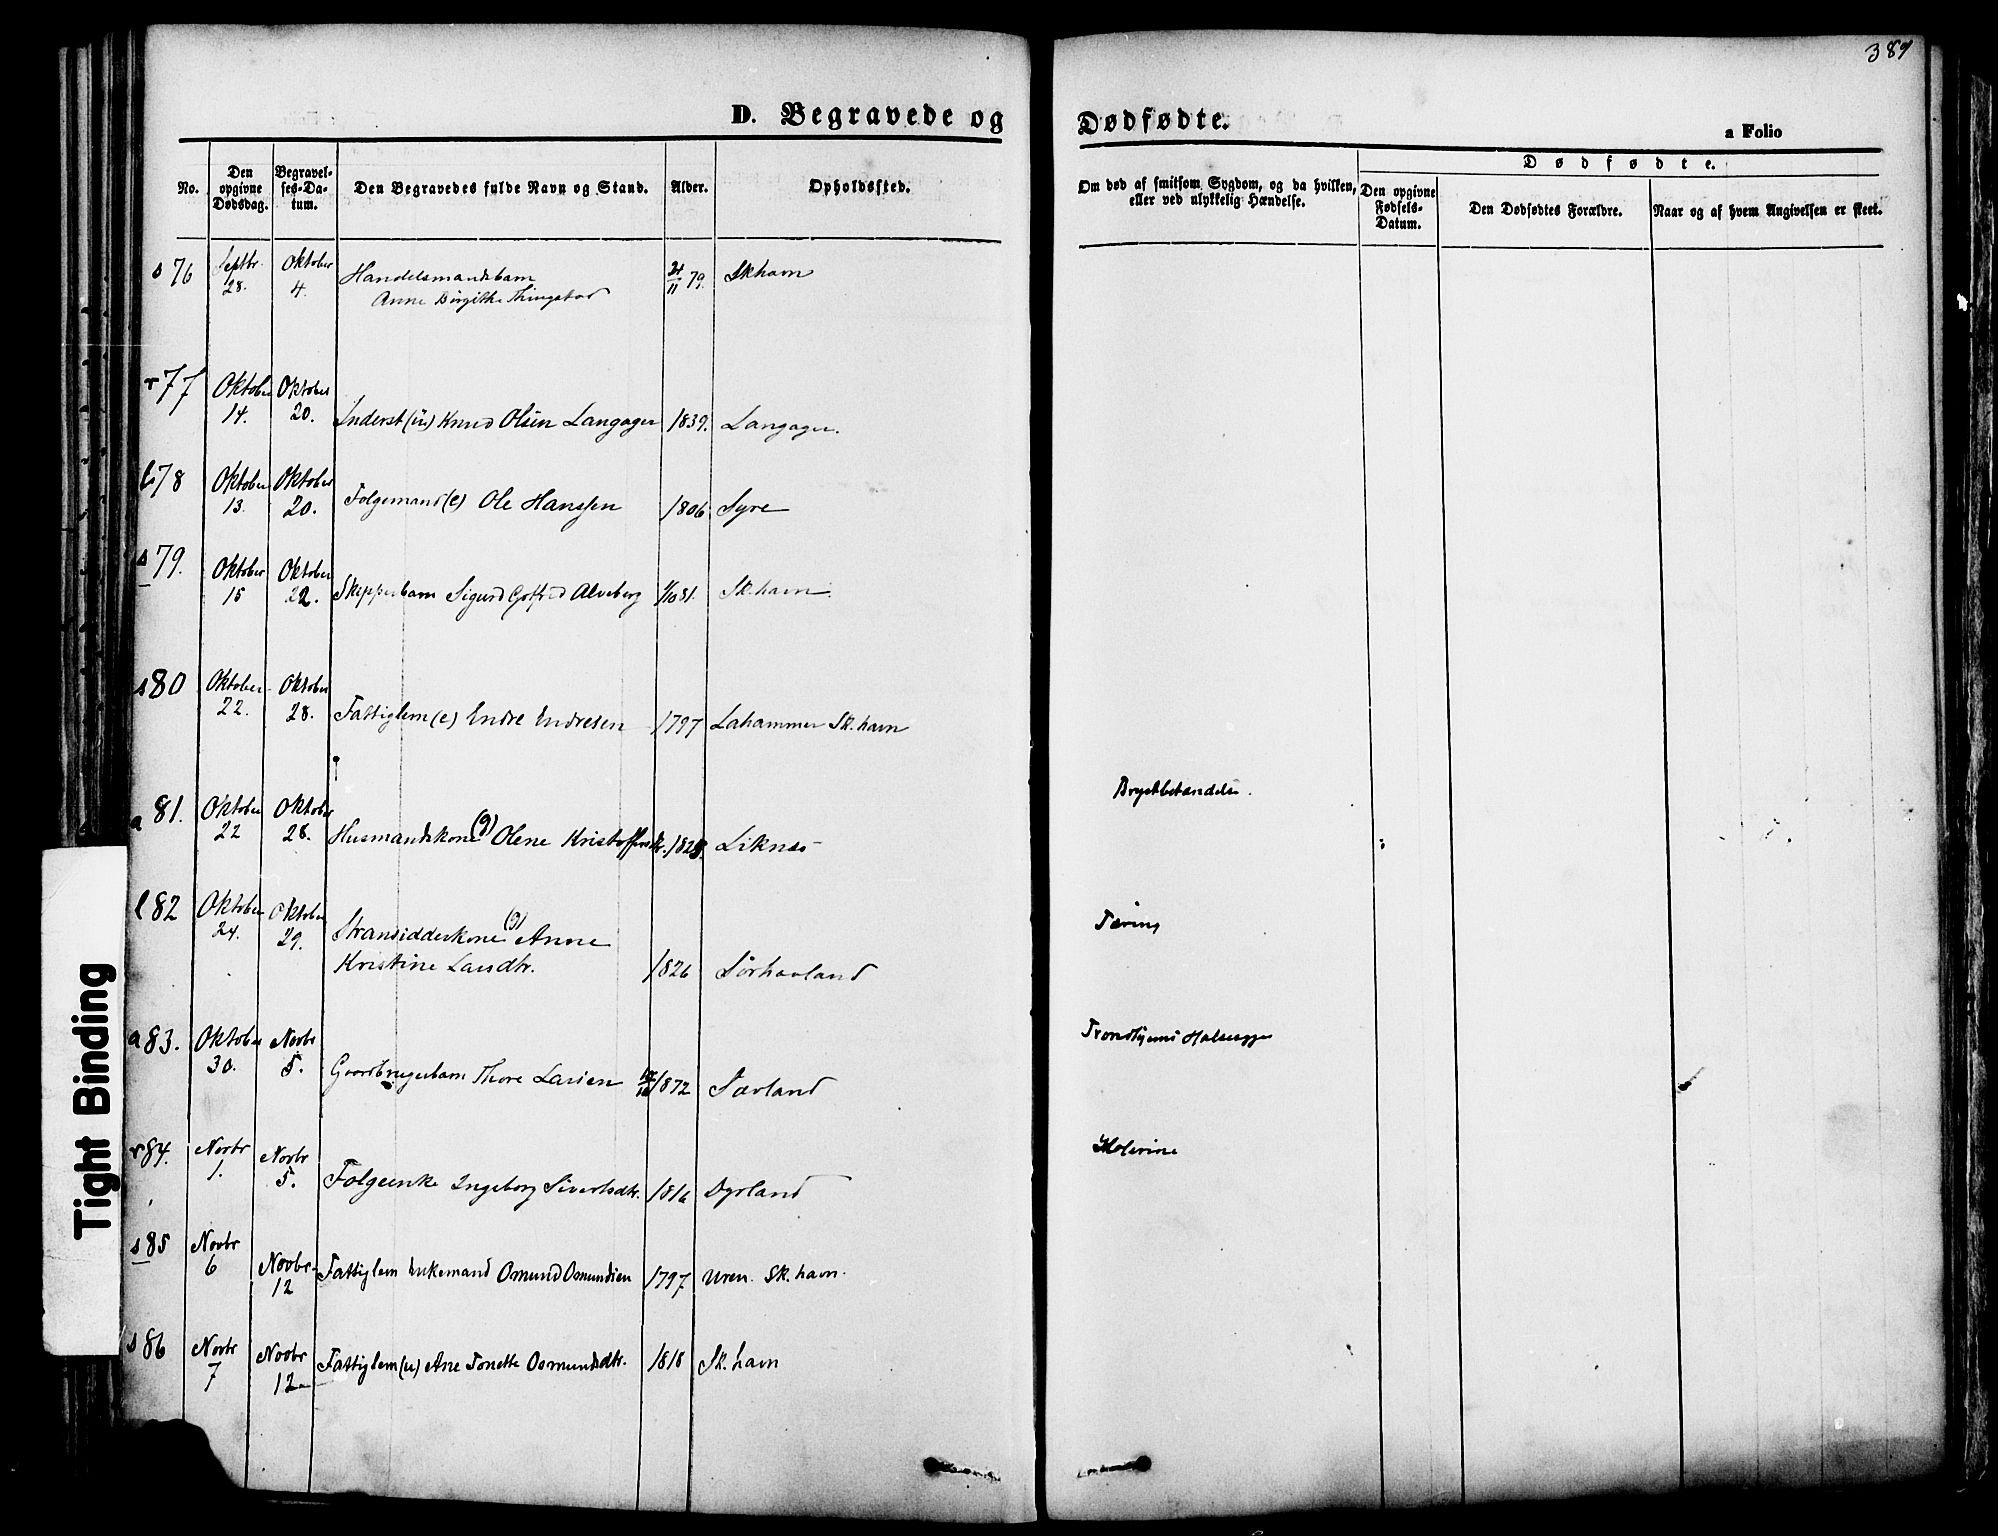 389
D. Begravede og Dødfødte.
a Folio
No.
Den opgivne Dødsdag.
Begravelses-Datum.
Den Begravedes fulde Navn og Stand.
Alder.
Opholdssted.
Om død af smitsom Sygdom, og da hvilken, eller ved ulykkelig Hændelse.
Dødfødte.
Den opgivne Fødsels-Datum.
Den Dødfødtes Forældre.
Naar og af hvem Angivelsen er skeet.
s 76 Septbr. 28. Oktober 4. Handelsmandsbarn 79. Skhavn
Anne Birgithe Thingstad
r 77 Oktober 14. Oktober 20. Inderst (u) Knud Olsen Langager 1839. Langager.
78 Oktober 13. Oktober 20. Folgemand (e) Ole Hanssen 1806 Syre
s 79. Oktober 15 Oktober 22. Skipperbarn Sigurd Gotfred Alveberg Sk.havn.
s 80 Oktober 22. Oktober 28. Fattiglem (e) Endre Endresen 1797 Lahammer Sk.havn
a 81. Oktober 22 Oktober 28. Husmandskone (g) Olene Kristoffersdtr. Liknes Brystbetændelse.
l 82 Oktober 24. Oktober 29. Strandsidderkone (g) Anne
Kristine Larsdtr. 1826 Sørhavland Tæring
a 83. Oktober 30. Novbr 5. Gaardbrugerbarn Thore Larsen 1872 Sævland Trondhjems Halsesyge
r 84. Novbr 1. Novbr 5. Folgeenke Ingeborg Sivertsdtr. 1816 Dyrland Kolerine
s 85 Novbr 6 Novbr. 12 Fattiglem Enkemand Osmund Osmundsen 1797 Uren Sk.havn.
s 86 Novbr 7 Novbr 12 Fattiglem (u) Ane Tonette Osmundsdtr. 1818 Sk.havn
Tight Binding